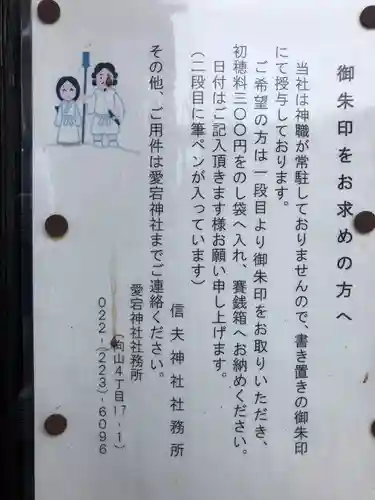 御朱印をお求めの方へ
当社は神職が常駐しておりませんので、書き置きの御朱印
にて授与しております。
ご希望の方は一段目より御朱印をお取りいただき、
初穂料三〇〇円をのし袋へ入れ、賽銭箱へお納めください。
日付はご記入頂きます様お願い申し上げます。
(二段目に筆ペンが入っています)
信夫神社社務所
その他、ご用件は愛宕神社までご連絡ください。
愛宕神社社務所
(向山4丁目17-1)
022-(223)-6096